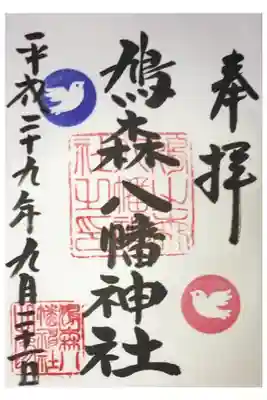 奉拝
鳩森八幡神社
平成二十九年九月三十日